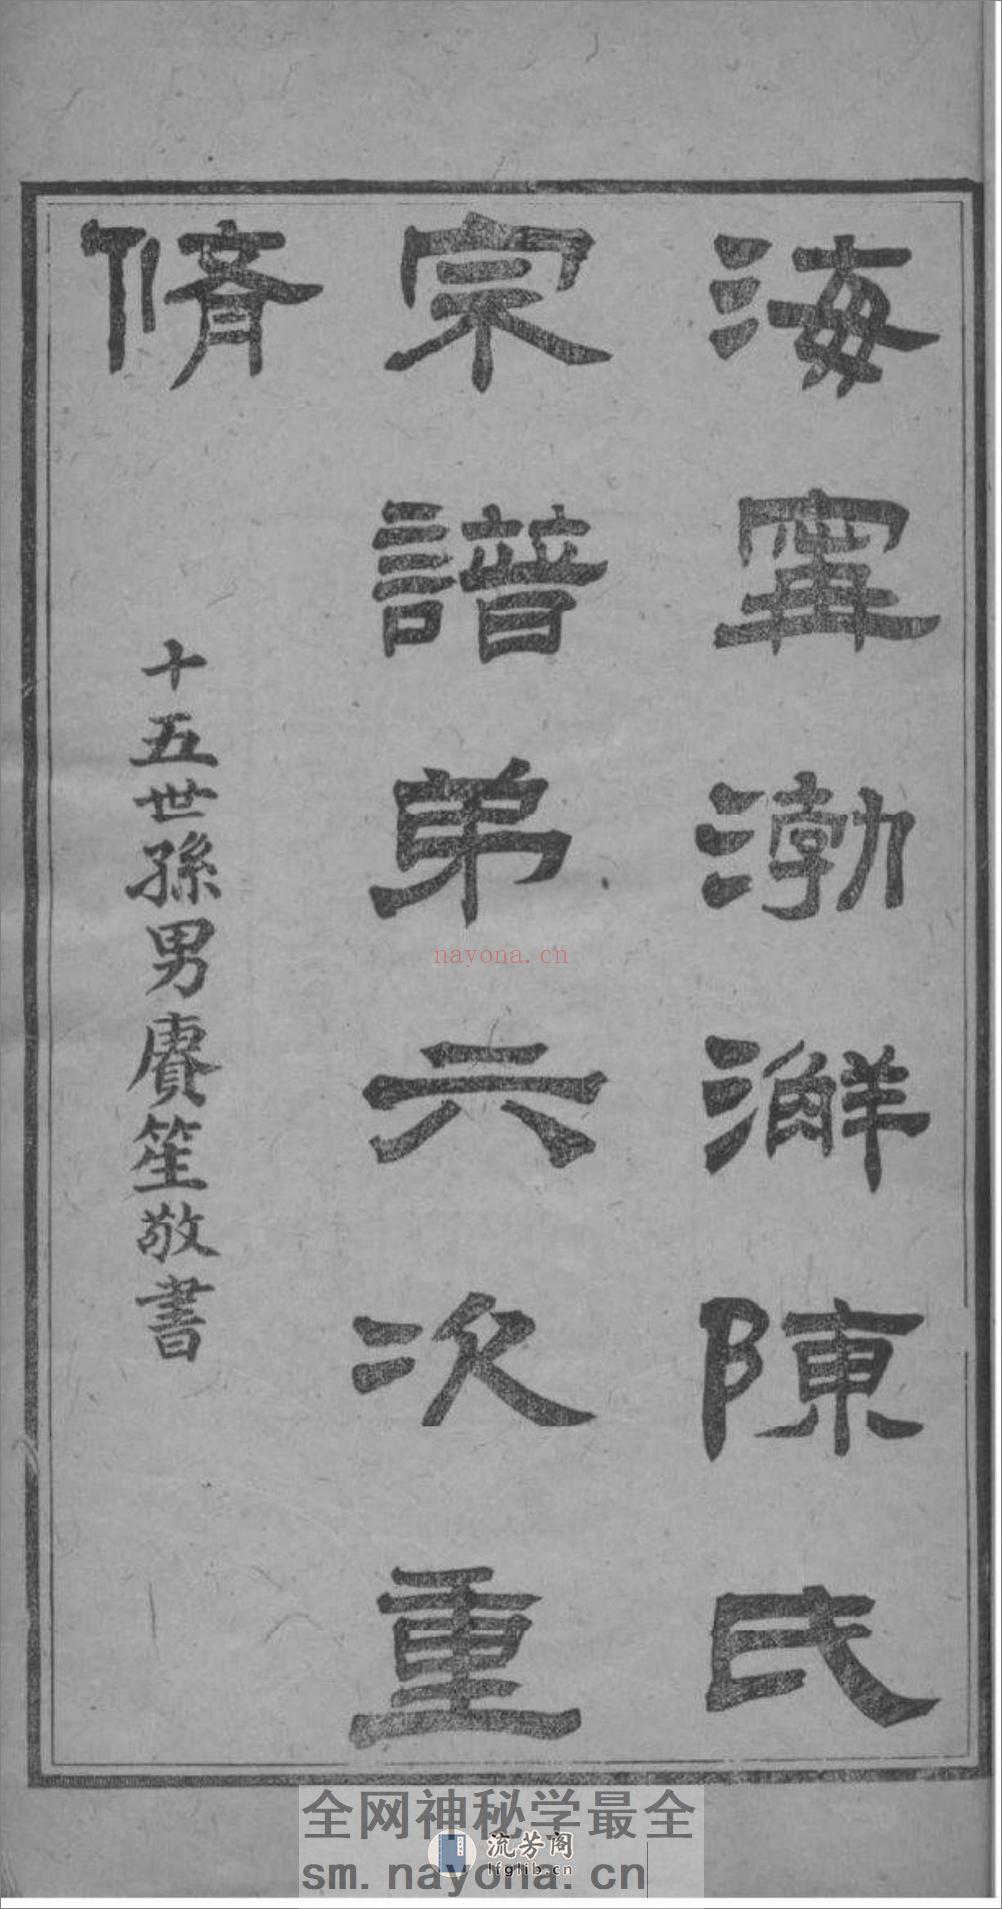 海寧渤澥陳氏
宗譜弟六次重
脩
十五世孫男賡笙敬書
nayona.cn
全网神秘学最全
流芳阁
lfglib.cn
sm.nayona.cn